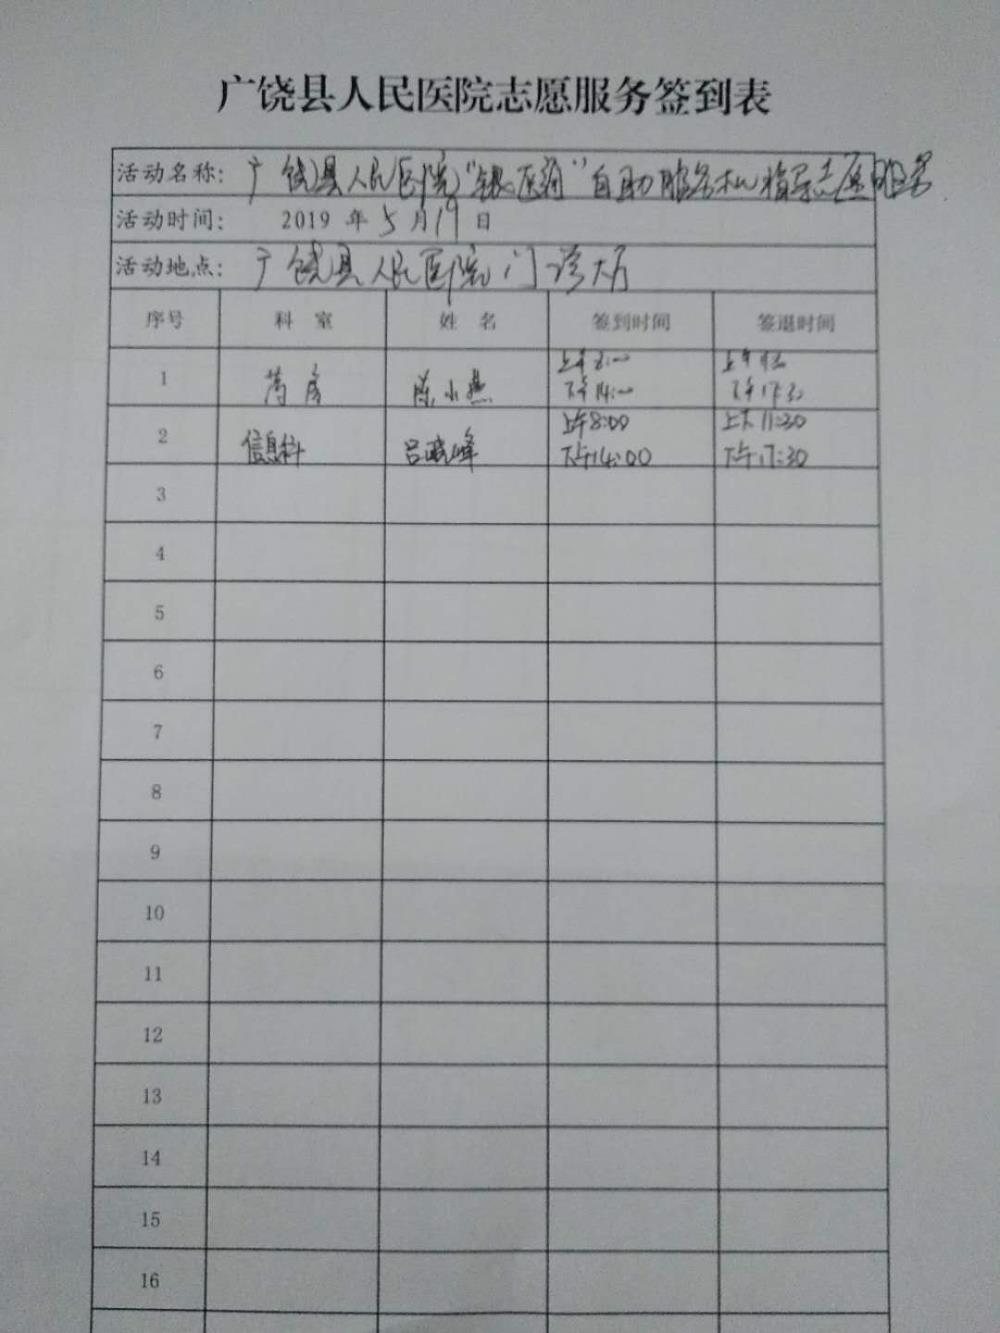 广饶县人民医院志愿服务签到表
活动名称: 广饶县人民医院"银医通"自助服务机指导志愿服务
活动时间: 2019 年 5 月 19 日
活动地点: 广饶县人民医院门诊大厅
序号 科 室 姓 名 签到时间 签退时间
1 药房 陈小燕 上午8:00 下午14:00 上午 下午17:30
2 信息科 吕晓峰 上午8:00 下午14:00 上午11:30 下午17:30
3
4
5
6
7
8
9
10
11
12
13
14
15
16